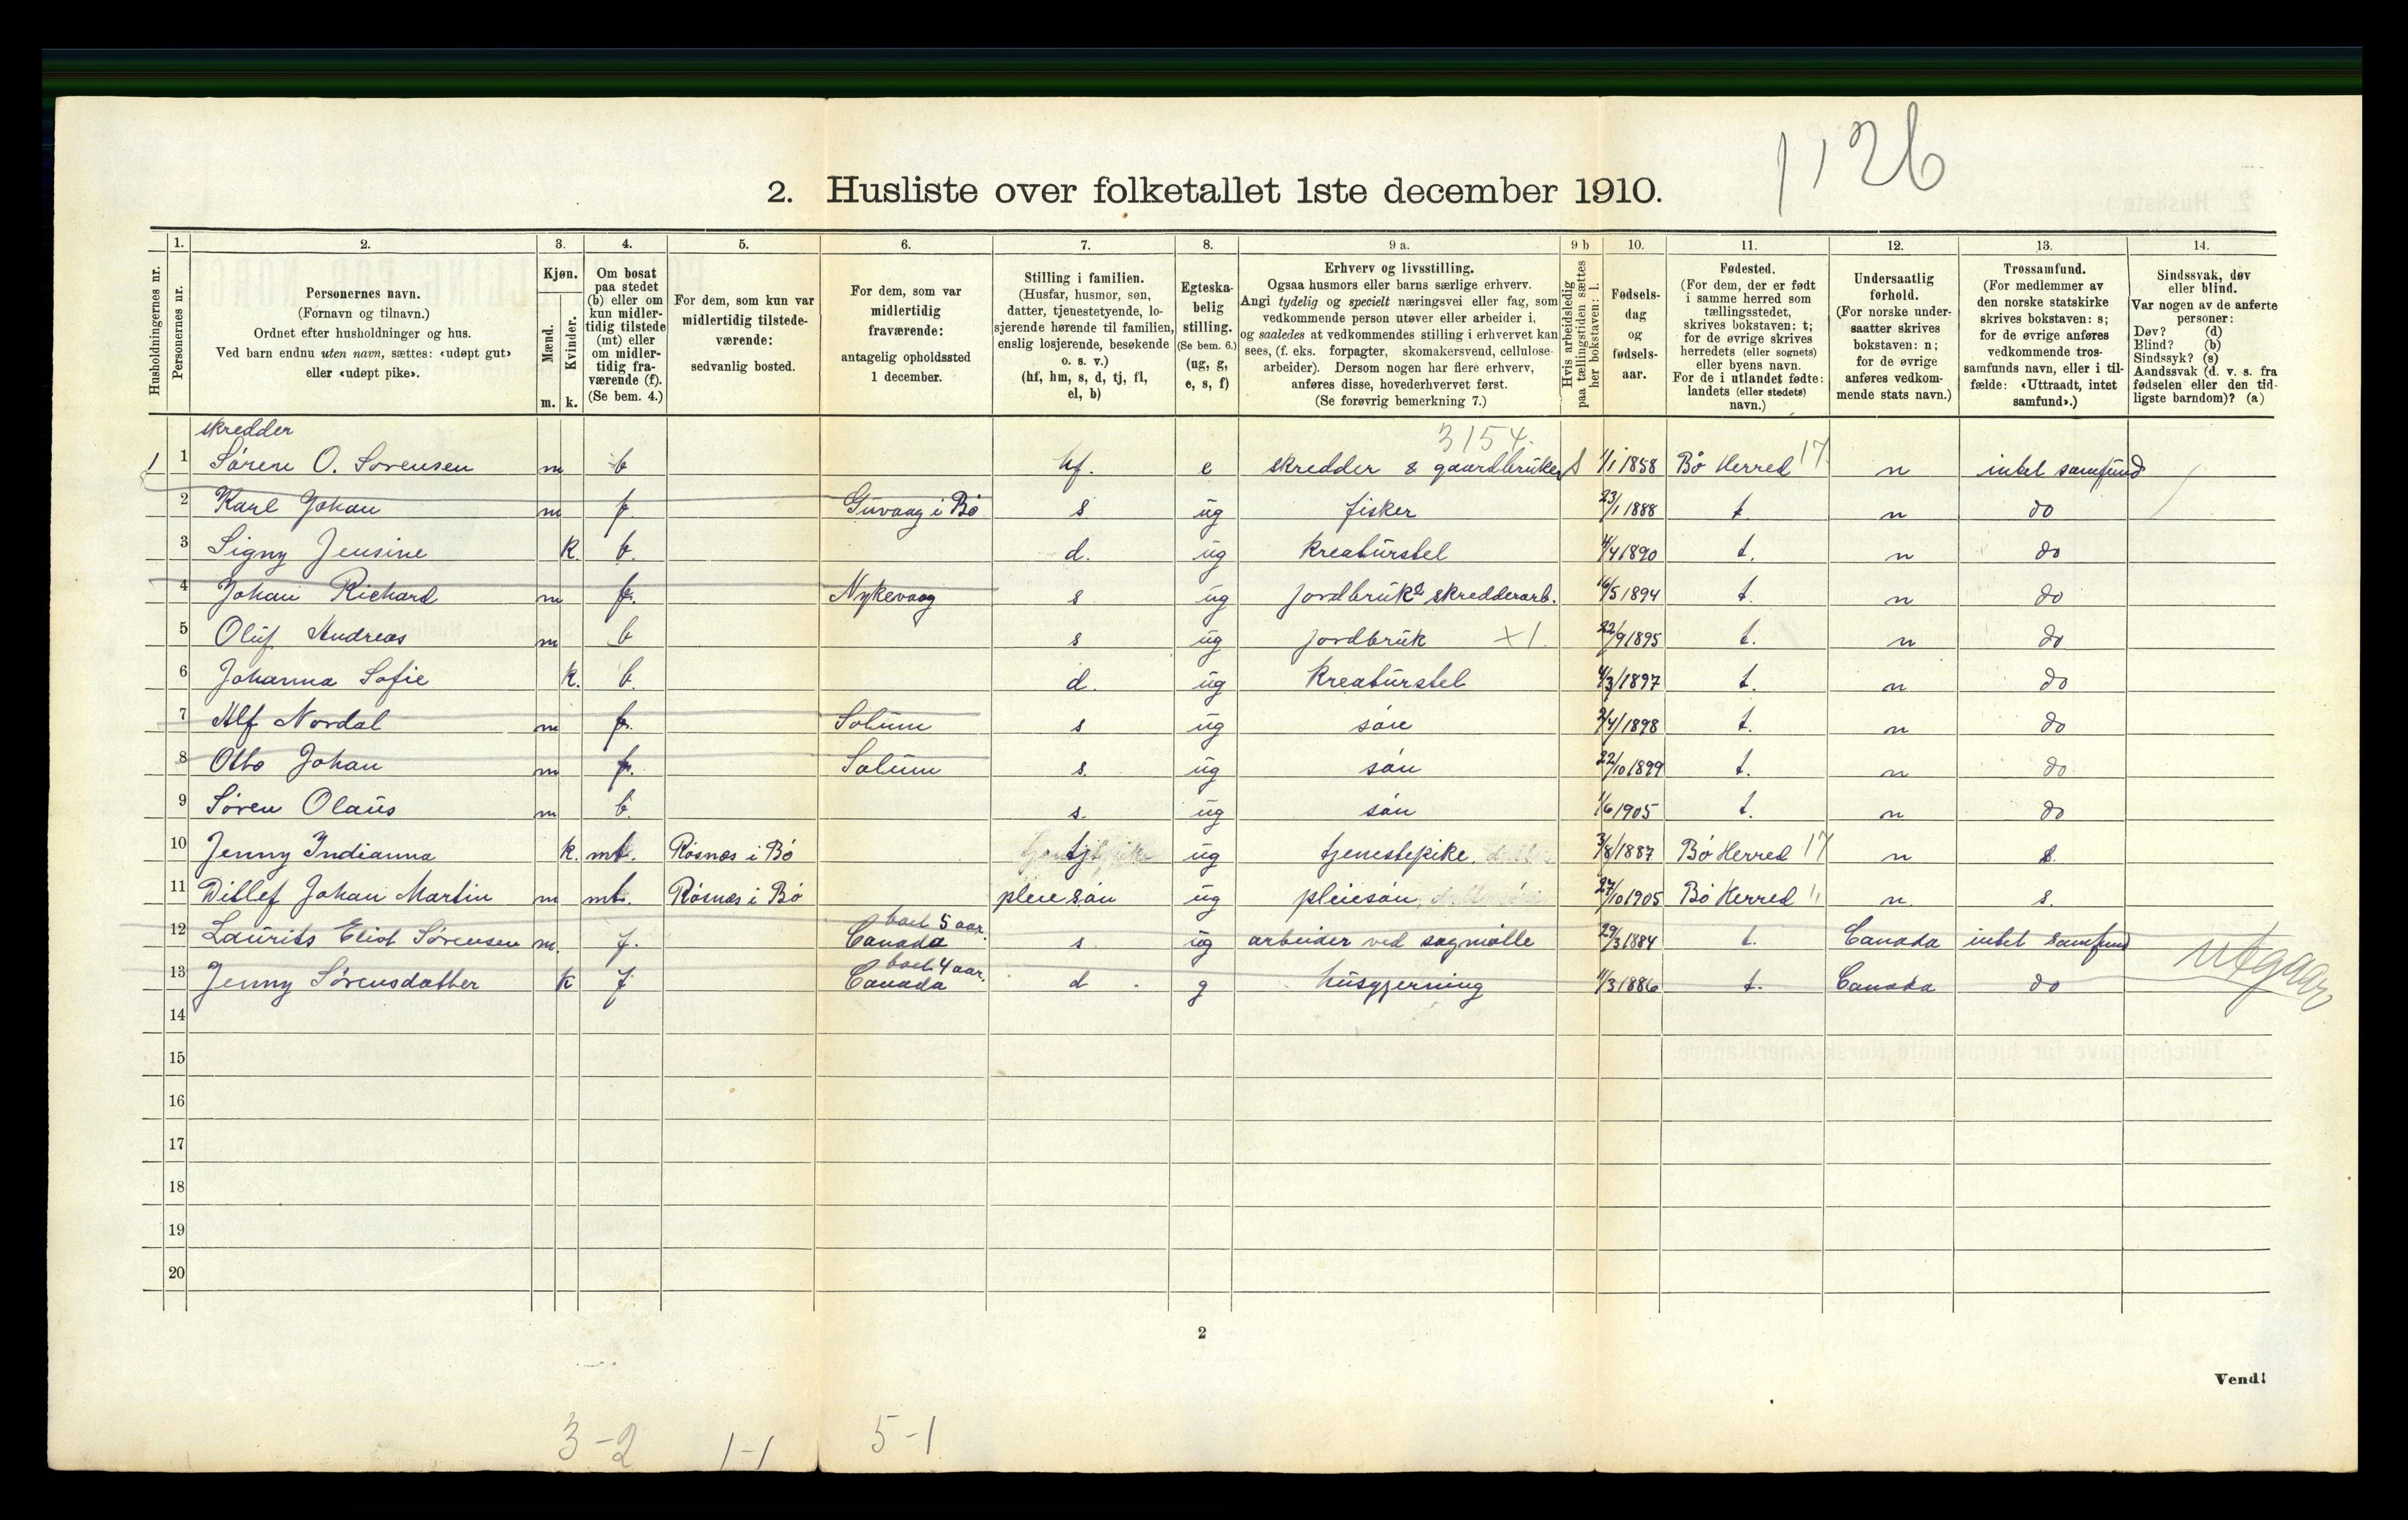 1126
2. Husliste over folketallet 1ste december 1910.
Husholdningernes nr.
1.
Personernes nr.
2.
Personernes navn.
(Fornavn og tilnavn.)
Ordnet efter husholdninger og hus.
Ved barn endnu uten navn, sættes: «udøpt gut»
eller «udøpt pike».
3.
Kjøn.
Mænd.
Kvinder.
m. k.
4.
Om bosat
paa stedet
(b) eller om
kun midler-
tidig tilstede
(mt) eller
om midler-
tidig fra-
værende (f).
(Se bem. 4.)
5.
For dem, som kun var
midlertidig tilstede-
værende:
sedvanlig bosted.
6.
For dem, som var
midlertidig
fraværende:
antagelig opholdssted
1 december.
7.
Stilling i familien.
(Husfar, husmor, søn,
datter, tjenestetyende, lo-
sjerende hørende til familien,
enslig losjerende, besøkende
o. s. v.)
(hf, hm, s, d, tj, fl,
el, b)
8.
Egteska-
belig
stilling.
(Se bem. 6.)
(ug, g,
e, s, f)
9 a.
Erhverv og livsstilling.
Ogsaa husmors eller barns særlige erhverv.
Angi tydelig og specielt næringsvei eller fag, som
vedkommende person utøver eller arbeider i,
og saaledes at vedkommendes stilling i erhvervet kan
sees, (f. eks. forpagter, skomakersvend, cellulose-
arbeider). Dersom nogen har flere erhverv,
anføres disse, hovederhvervet først.
(Se forøvrig bemerkning 7.)
9 b
Hvis arbeidsledig
paa tællingstiden sættes
her bokstaven: l.
10.
Fødsels-
dag
og
fødsels-
aar.
11.
Fødested.
(For dem, der er født
i samme herred som
tællingsstedet,
skrives bokstaven: t;
for de øvrige skrives
herredets (eller sognets)
eller byens navn.
For de i utlandet fødte:
landets (eller stedets)
navn.)
12.
Undersaatlig
forhold.
(For norske under-
saatter skrives
bokstaven: n;
for de øvrige
anføres vedkom-
mende stats navn.)
13.
Trossamfund.
(For medlemmer av
den norske statskirke
skrives bokstaven: s;
for de øvrige anføres
vedkommende tros-
samfunds navn, eller i til-
fælde: «Uttraadt, intet
samfund».)
14.
Sindssvak, døv
eller blind.
Var nogen av de anførte
personer:
Døv? (d)
Blind? (b)
Sindssyk? (s)
Aandssvak (d. v. s. fra
fødselen eller den tid-
ligste barndom)? (a)
skredder 3154.
1 1 Søren O. Sørensen m b hf. e skredder & gaardbruker 1/1 1858 Bø Herred 17 n intet samfund
2 Karl Johan m f Guvaag i Bø s ug fisker 23/1 1888 t. n do
3 Signy Jensine k. b. d. ug kreaturstel 4/4 1890 t. n do
4 Johan Richard m f. Nykevaag s ug jordbruk & skredderarb. 16/5 1894 t. n do
5 Oluf Andreas m b s ug jordbruk x1. 22/9 1895 t. n do
6 Johanna Sofie k. b. d. ug kreaturstel 4/3 1897 t. n do
7 Alf Nordal m f. Solum s ug søn 2/4 1898 t. n do
8 Otto Johan m f. Solum s. ug søn 22/10 1899 t. n do
9 Søren Olaus m b. s. ug søn 1/6 1905 t. n do
10 Jenny Indianna k. mt. Røsnes i Bø tj ug tjenestepike 3/8 1887 Bø Herred 17 n s.
11 Ditlef Johan Martin m mt. Røsnes i Bø pleiesøn ug pleiesøn 27/10 1905 Bø Herred " n s.
boet 5 aar.
12 Laurits Eliot Sørensen m. f. Canada s ug arbeider ved sagmølle 29/3 1884 t. Canada intet samfund
utgaar
boet 4 aar.
13 Jenny Sørensdatter k f Canada d g husgjerning 11/3 1886 t. Canada do
14
15
16
17
18
19
20
2
Vend!
3-2 1-1 5-1